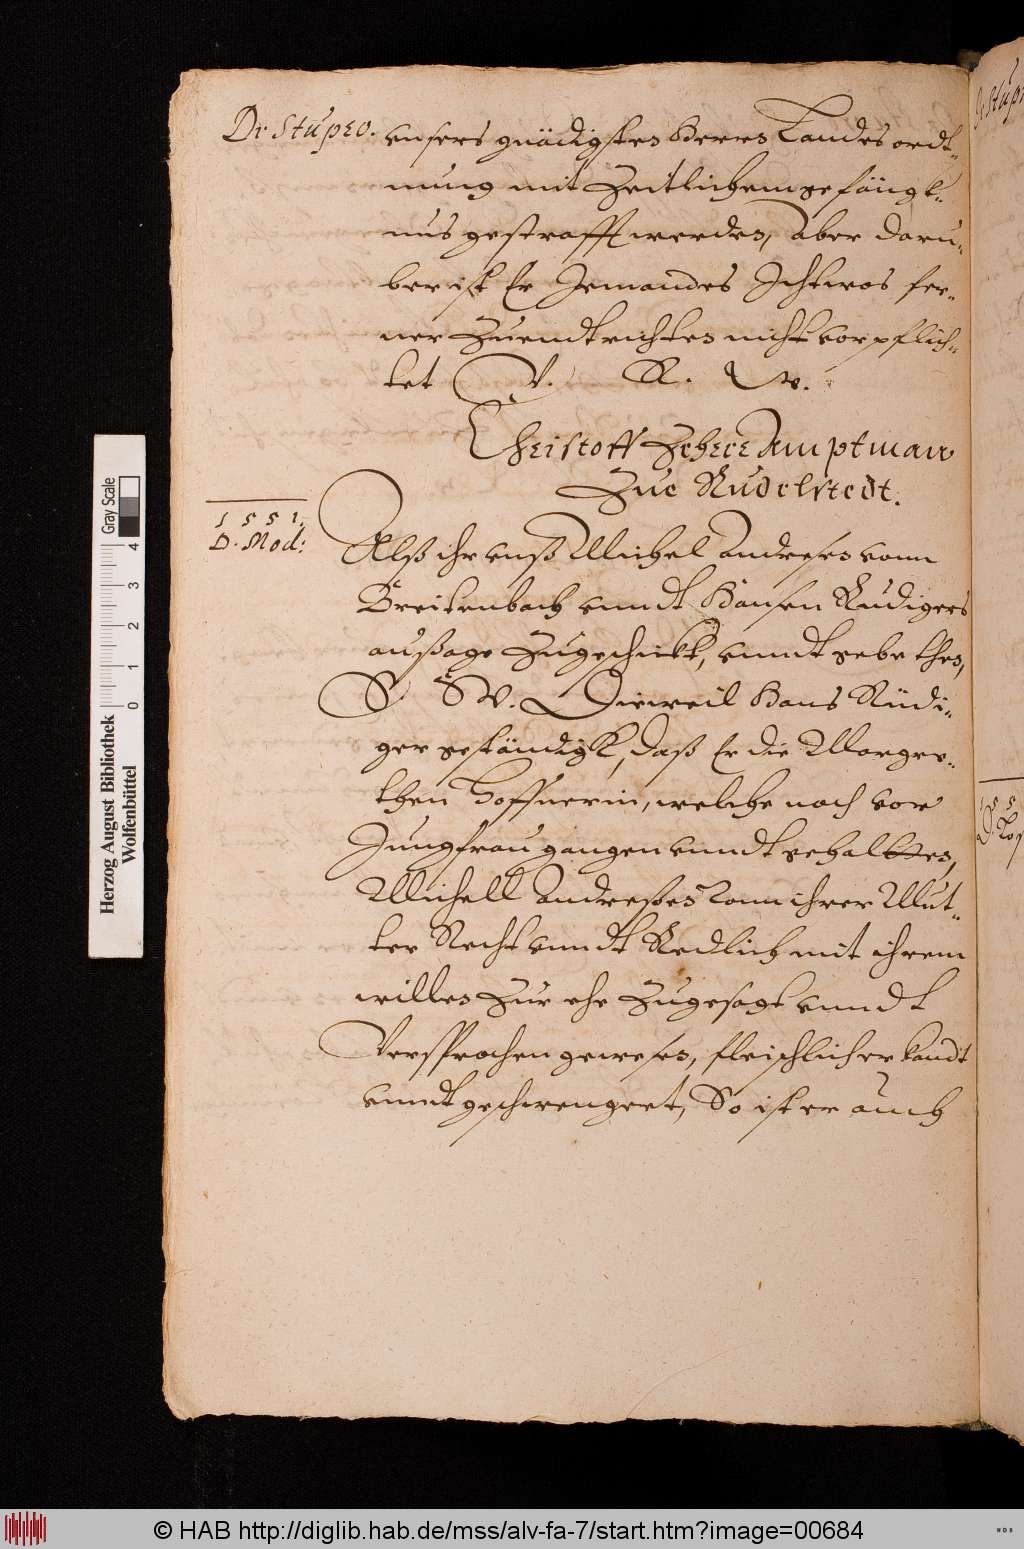 De Stupro.
vnsers gnädigsten Herren Landes ordt-
nung mit Zeitlichem gefängk-
nus gestrafft werden, Aber daru-
ber ist Er Jemandes Ichtwas fer-
ner Zuendtrichten nicht vorpflich-
tet V. R. W.
Christoff Amptman
Zue Rudelstedt.
1551.
D. Mod:
Alß ihr vnß Michel Andresen vonn
Breitenbach vnndt Hansen Rudigers
außage Zugeschickt, vnndt gebethen,
P. S W. Dieweil Hans Rüdi-
ger geständigk, daß Er die Margre-
then Hoffnerin, welche noch vor
Jungfrau gangen vnndt gehalten,
Michell Andreßen vonn ihrer Mut-
ter Recht vnndt Redlich mit ihrem
willen Zur ehe Zugesagt vnndt
Versprochen gewesen, fleischlich erkandt
vnndt geschwengert, So ist er auch
De Stupr
155
Herzog August Bibliothek
Wolfenbüttel
Gray Scale
0 1 2 3 4
© HAB http://diglib.hab.de/mss/alv-fa-7/start.htm?image=00684